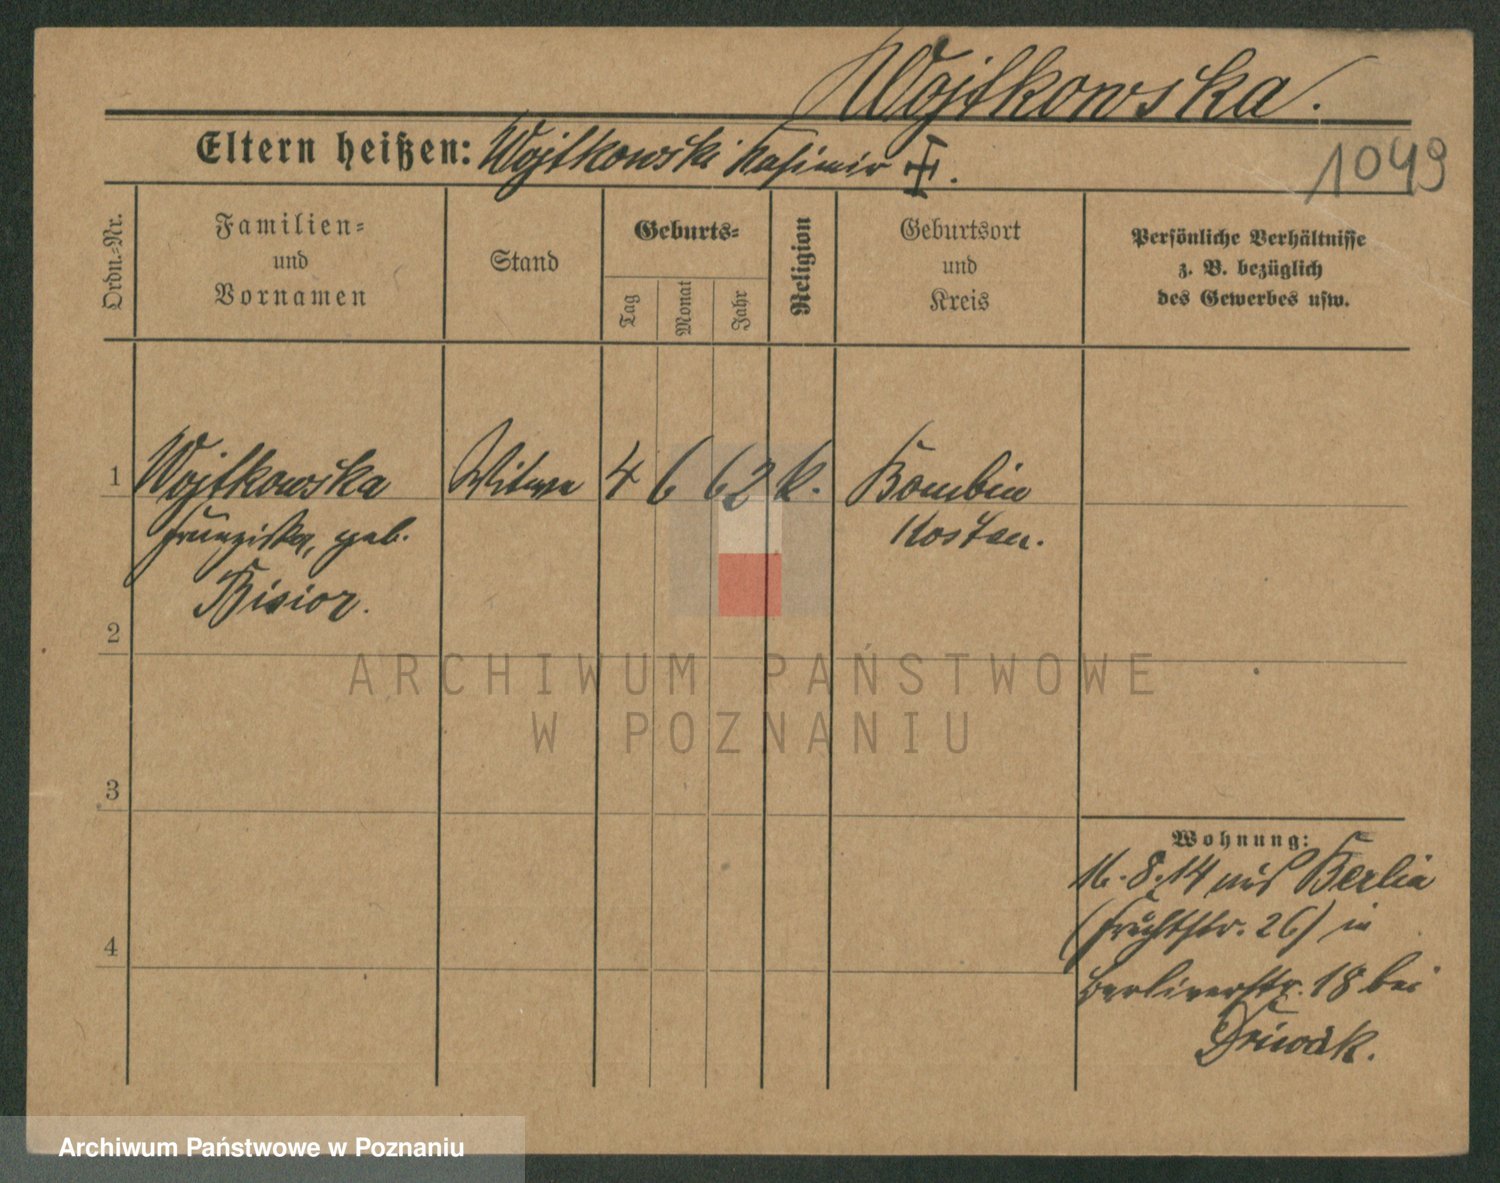 Wojtkowska.
Eltern heißen: Wojtkowski Kasimir
1049
Ordn.-Nr.
Familien-
und
Vornamen
Stand
Geburts-
Tag
Monat
Jahr
Religion
Geburtsort
und
Kreis
Persönliche Verhältnisse
z. B. bezüglich
des Gewerbes usw.
1 Wojtkowska Witwe 4 6 62 k. Bombin
Franziska, geb. Kosten.
Bisior.
2
3
4
Wohnung:
16. 8. 14 aus Berlin
(Fruchtstr. 26) in
Berlinerstr. 18 bei
ARCHIWUM PAŃSTWOWE
W POZNANIU
Archiwum Państwowe w Poznaniu